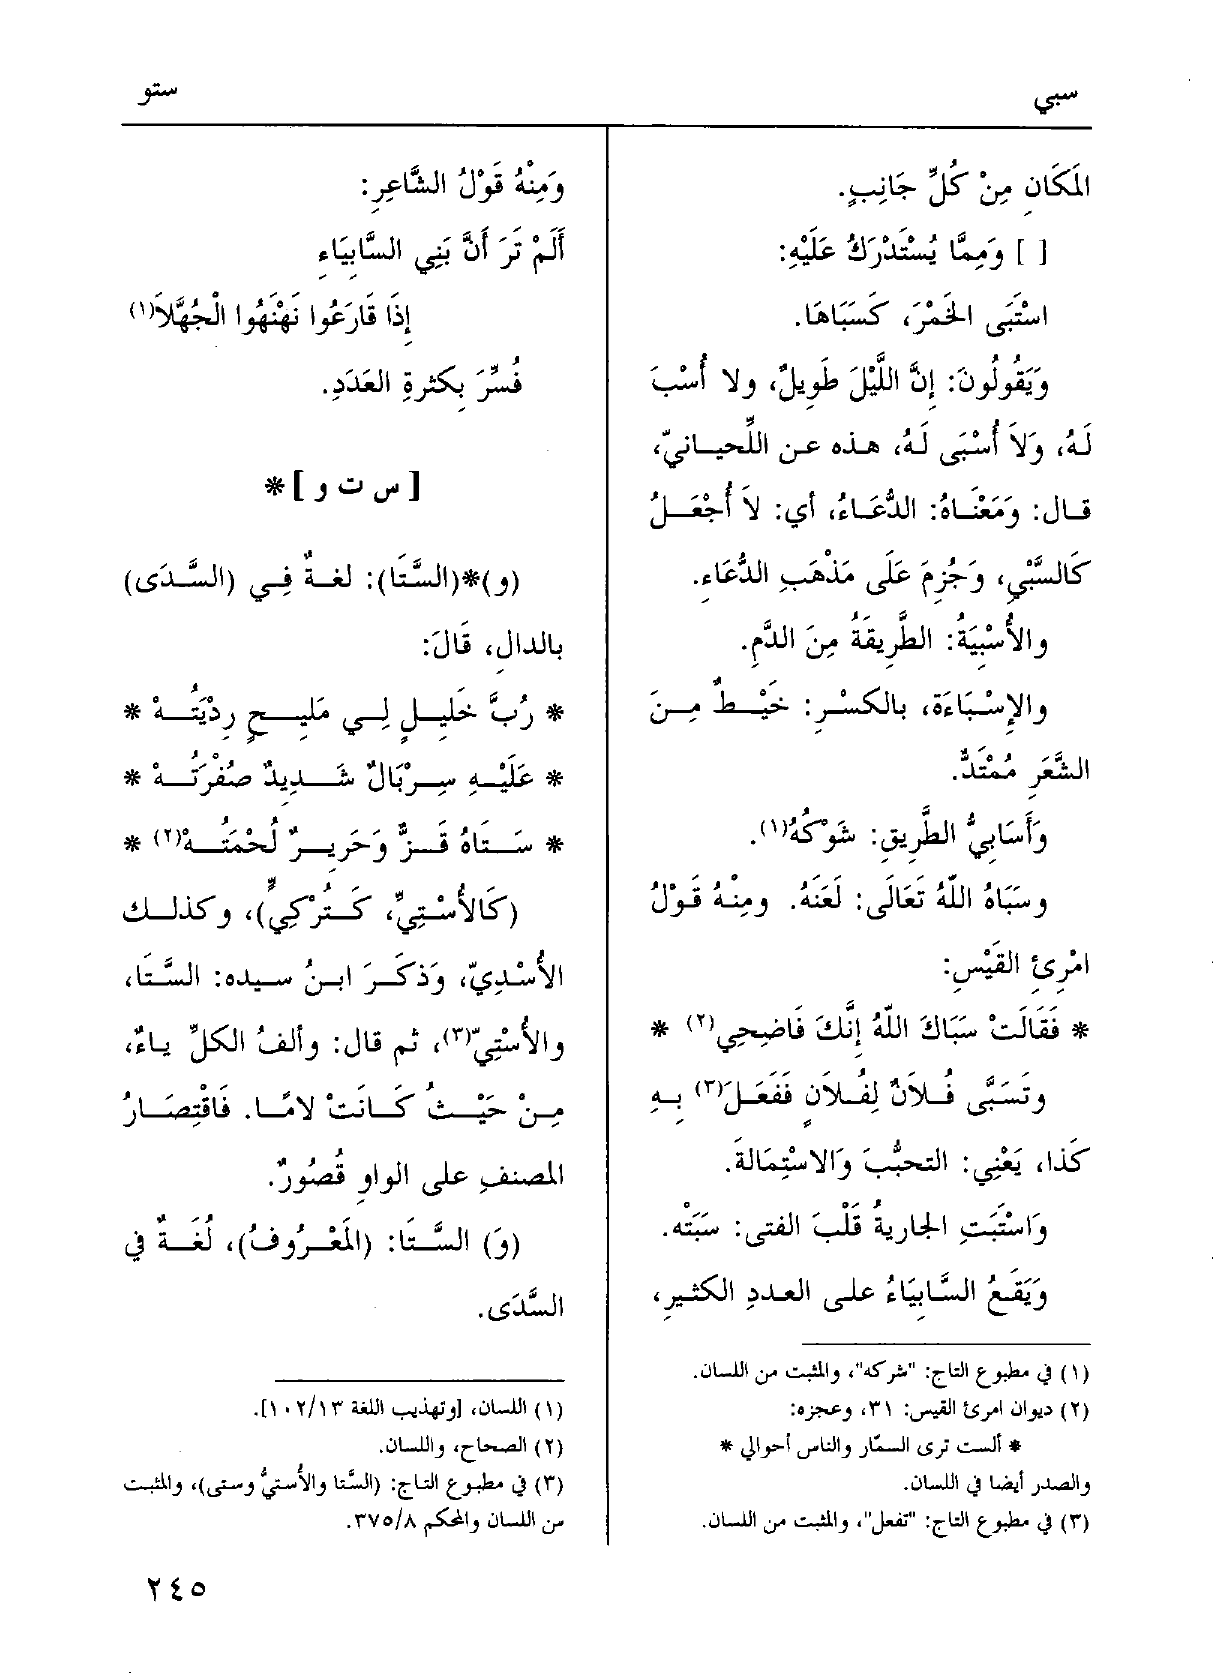 سبي
ستو
المَكَانِ مِنْ كُلِّ جَانِبٍ.
[ ] وَمِمَّا يُسْتَدْرَكُ عَلَيْهِ:
اسْتَبَى الخَمْرَ، كَسَبَاهَا.
وَيَقُولُونَ: إِنَّ اللَّيْلَ طَوِيلٌ، ولا أُسْبَ
لَهُ، وَلاَ أُسْبَى لَهُ، هذه عن اللِّحيانيّ،
قال: وَمَعْنَاهُ: الدُّعَاءُ، أي: لاَ أُجْعَلُ
كَالسَّبْيِ، وَجُزِمَ عَلَى مَذْهَبِ الدُّعَاءِ.
والأُسْبِيَةُ: الطَّرِيقَةُ مِنَ الدَّمِ.
والإِسْبَاءَة، بالكسْرِ: خَيْطٌ مِنَ
الشَّعَرِ مُمْتَدٌّ.
وَأَسَابِيُّ الطَّرِيقِ: شَوْكَهُ(١).
وسَبَاهُ اللّهُ تَعَالَى: لَعَنَهُ. ومِنْهُ قَوْلُ
امْرِئِ القَيْسِ:
* فَقَالَتْ سَبَاكَ اللّهُ إِنَّكَ فَاضِحِي(٢) *
وتَسَبَّى فُلاَنٌ لِفُلاَنٍ فَفَعَلَ(٣) بِهِ
كَذا، يَعْنِي: التحبُّبَ وَالاسْتِمَالةَ.
وَاسْتَبَتِ الجَارِيةُ قَلْبَ الفتى: سَبَتْه.
وَيَقَعُ السَّابِيَاءُ على العددِ الكثيرِ،
(١) في مطبوع التاج: "شركه"، والمثبت من اللسان.
(٢) ديوان امرئ القيس: ٣١، وعجزه:
* ألست ترى السمّار والناس أحوالي *
والصدر أيضا في اللسان.
(٣) في مطبوع التاج: "تفعل"، والمثبت من اللسان.
وَمِنْهُ قَوْلُ الشَّاعِرِ:
أَلَمْ تَرَ أَنَّ بَنِي السَّابِيَاءِ
إِذَا قَارَعُوا نَهْنَهُوا الْجُهَّلاَ(١)
فُسِّرَ بِكثرةِ العَدَدِ.
[ س ت و ] *
(و)*(السَّتَا): لغةٌ فِي (السَّدَى)
بالدال، قَالَ:
* رُبَّ خَلِيلٍ لِي مَلِيحٍ رِدْيَتُهْ *
* عَلَيْهِ سِرْبَالٌ شَدِيدٌ صُفْرَتُهْ *
* سَتَاهُ قَزٌّ وَحَرِيرٌ لُحْمَتُهْ(٢) *
(كَالأُسْتِيِّ، كَتُرْكِيٍّ)، وكذلك
الأُسْدِيّ، وَذكَرَ ابنُ سيده: السَّتَا،
والأُسْتِيّ(٣)، ثم قال: وألفُ الكلِّ ياءٌ،
مِنْ حَيْثُ كَانَتْ لامًا. فَاقْتِصَارُ
المصنفِ على الواوِ قُصُورٌ.
(وَ) السَّتَا: (المَعْرُوفُ)، لُغَةٌ في
السَّدَى.
(١) اللسان، [وتهذيب اللغة ١٠٢/١٣].
(٢) الصحاح، واللسان.
(٣) في مطبوع التاج: (السَّتا والأُستيُّ وستى)، والمثبت
من اللسان والمحكم ٣٧٥/٨.
٢٤٥